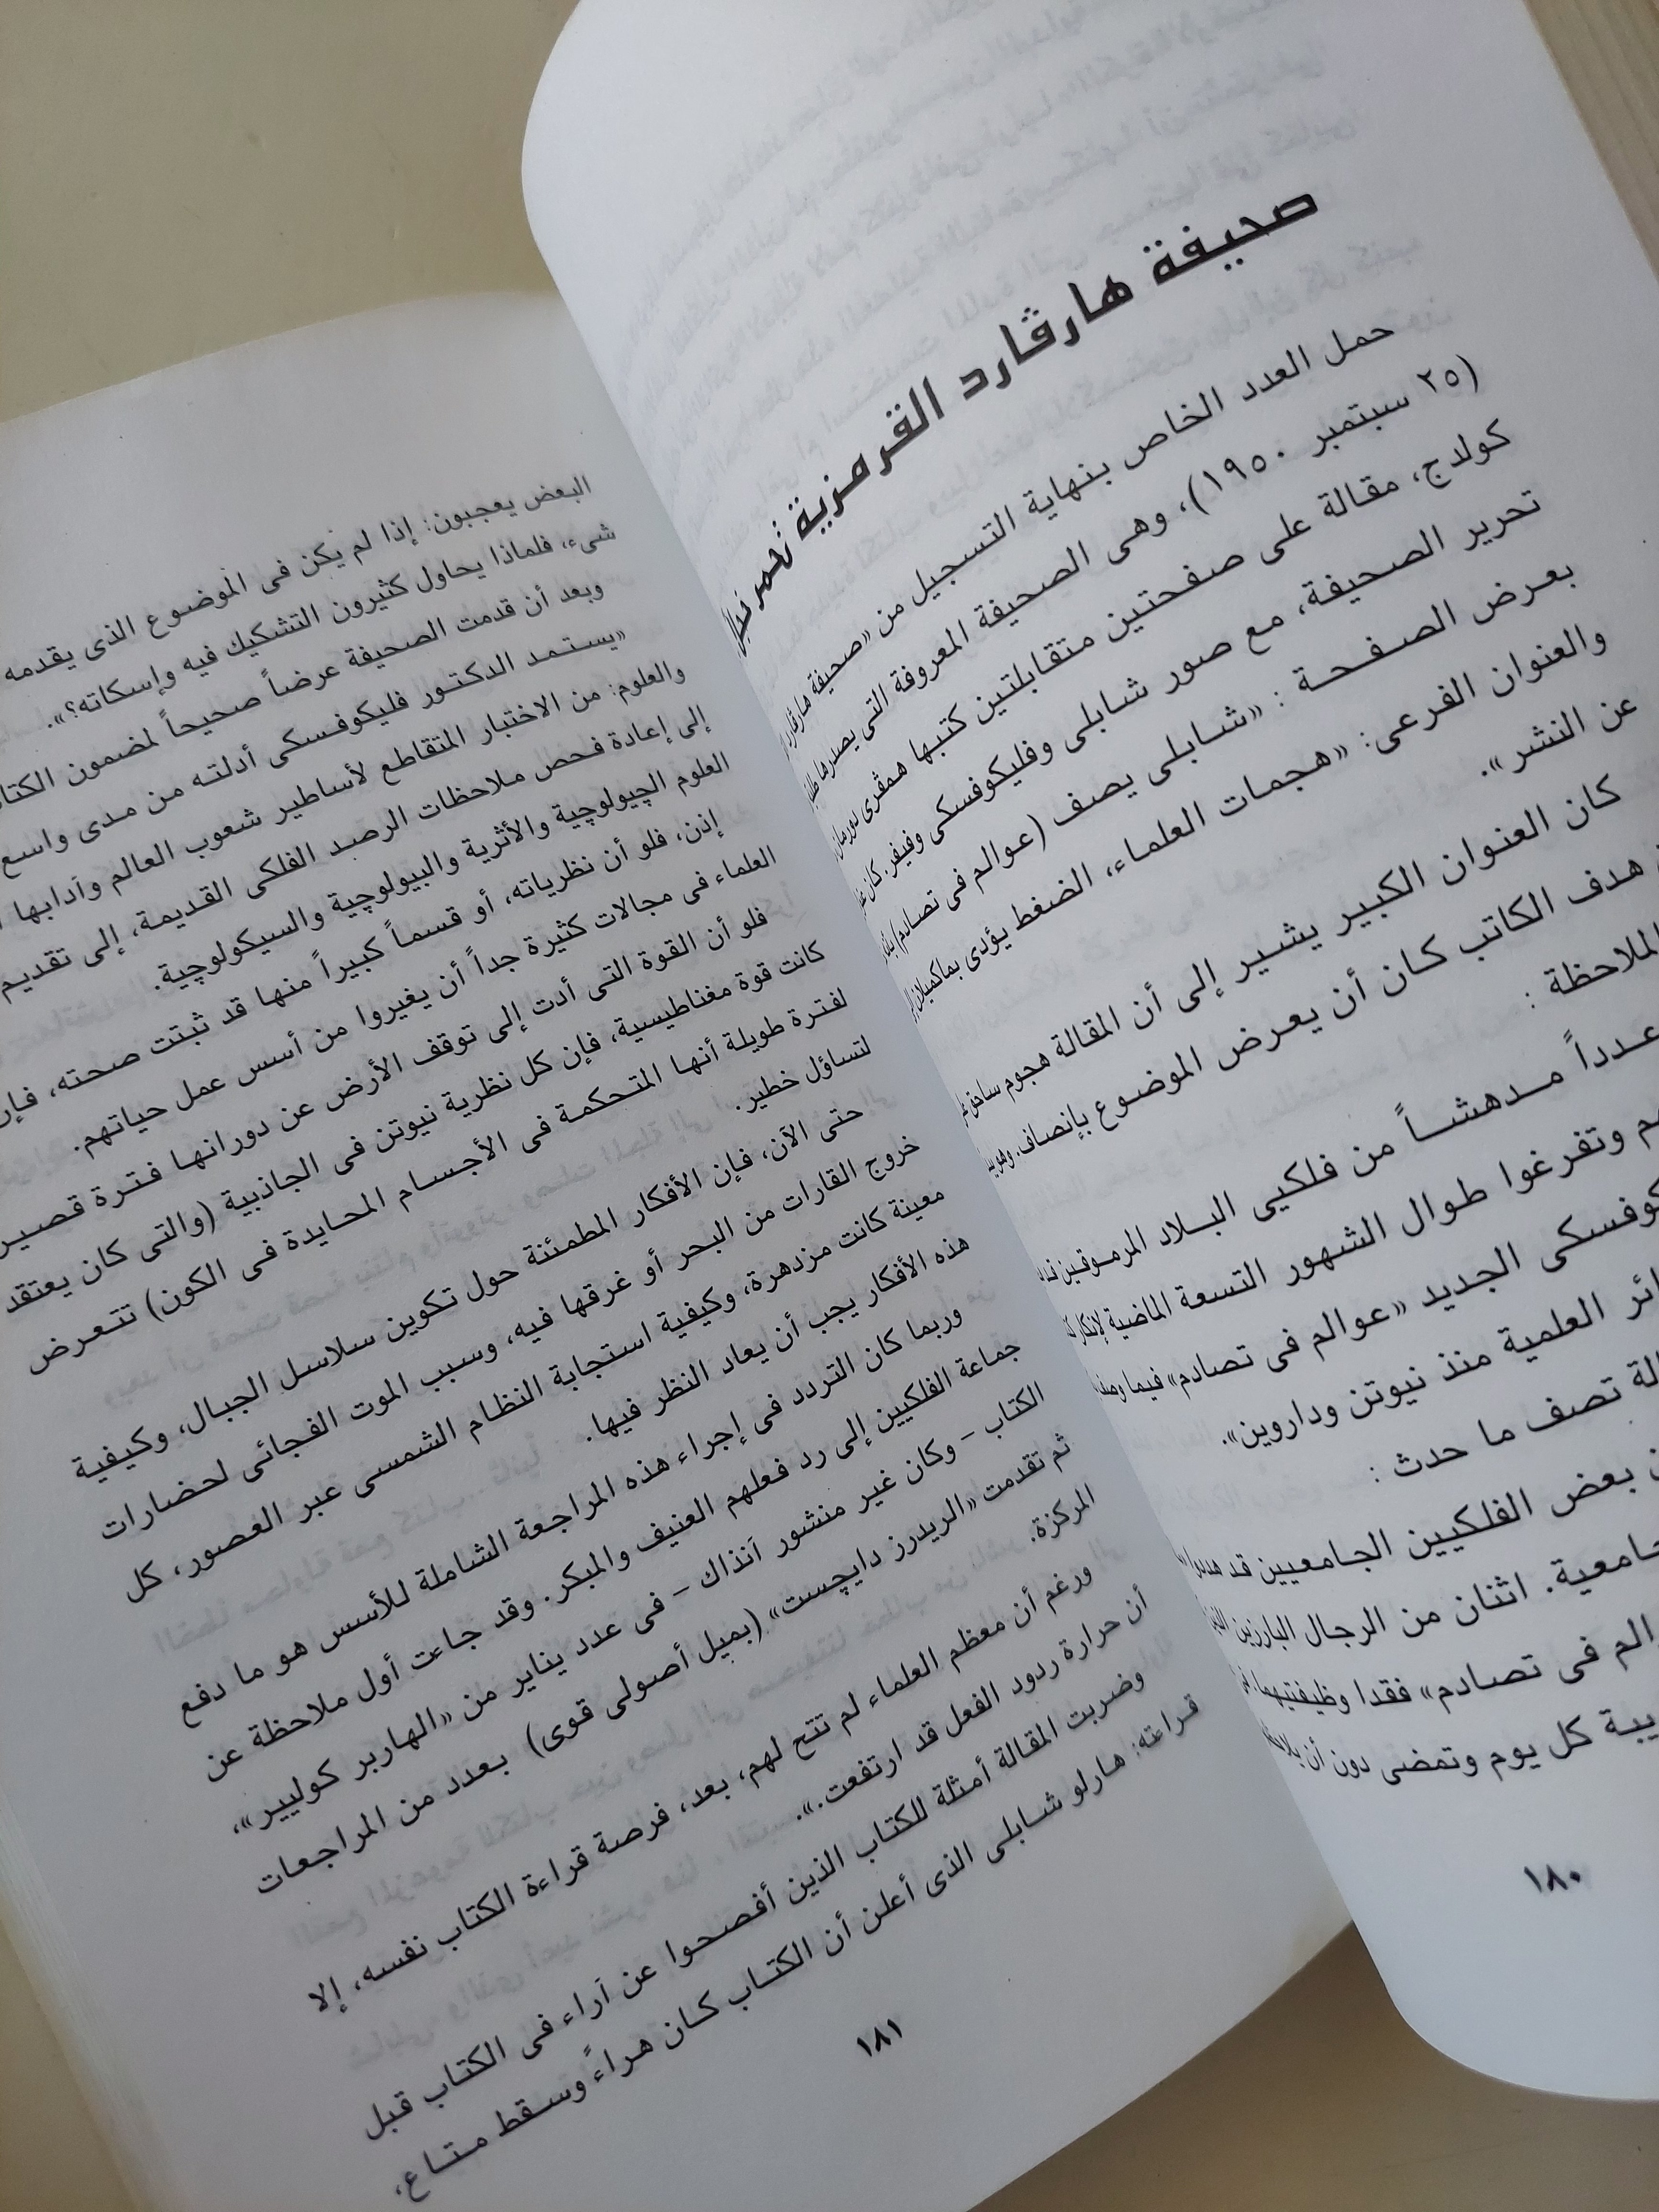 صحيفة هارڤارد القرمزية
حمل العدد الخاص بنهاية التسجيل من «صحيفة هارڤارد
(٢٥ سبتمبر ١٩٥٠)، وهى الصحيفة المعروفة التى يصدرها
كولدج، مقالة على صفحتين متقابلتين كتبها همڤرى
تحرير الصحيفة، مع صور شابلى وفليكوفسكى وفيفر. كان
بعرض الصفحة : «شابلى يصف (عوالم فى تصادم)
والعنوان الفرعى: «هجمات العلماء، الضغط يؤدى بماكميلان
عن النشر».
كان العنوان الكبير يشير إلى أن المقالة هجوم ساحق
هدف الكاتب كان أن يعرض الموضوع بإنصاف.
الملاحظة :
عدداً مدهشاً من فلكيى البلاد المرموقين
وتفرغوا طوال الشهور التسعة الماضية لإنكار
الجديد «عوالم فى تصادم» فيما
العلمية منذ نيوتن وداروين».
تصف ما حدث :
بعض الفلكيين الجامعيين قد هددوا
اثنان من الرجال البارزين
فى تصادم» فقدا وظيفتيهما
كل يوم وتمضى دون أن
١٨٠
البعض يعجبون: إذا لم يكن فى الموضوع الذى يقدمه
شىء، فلماذا يحاول كثيرون التشكيك فيه وإسكاته؟».
وبعد أن قدمت الصحيفة عرضاً صحيحاً لمضمون
«يستمد الدكتور فليكوفسكى أدلته من مدى واسع
والعلوم: من الاختبار المتقاطع لأساطير شعوب العالم وآدابها
إلى إعادة فحص ملاحظات الرصد الفلكى القديمة، إلى تقديم
العلوم الچيولوچية والأثرية والبيولوچية والسيكولوچية.
إذن، فلو أن نظرياته، أو قسماً كبيراً منها قد ثبتت صحته، فإن
العلماء فى مجالات كثيرة جداً أن يغيروا من أسس عمل حياتهم.
فلو أن القوة التى أدت إلى توقف الأرض عن دورانها فترة
كانت قوة مغناطيسية، فإن كل نظرية نيوتن فى الجاذبية (والتى كان يعتقد
لفترة طويلة أنها المتحكمة فى الأجسام المحايدة فى الكون) تتعرض
لتساؤل خطير.
حتى الآن، فإن الأفكار المطمئنة حول تكوين سلاسل الجبال، وكيفية
خروج القارات من البحر أو غرقها فيه، وسبب الموت الفجائى لحضارات
معينة كانت مزدهرة، وكيفية استجابة النظام الشمسى عبر العصور، كل
هذه الأفكار يجب أن يعاد النظر فيها.
وربما كان التردد فى إجراء هذه المراجعة الشاملة للأسس هو ما دفع
جماعة الفلكيين إلى رد فعلهم العنيف والمبكر. وقد جاءت أول ملاحظة عن
الكتاب – وكان غير منشور آنذاك – فى عدد يناير من «الهاربر كوليير»،
ثم تقدمت «الريدرز دايچست» (بميل أصولى قوى) بعدد من المراجعات
المركزة.
ورغم أن معظم العلماء لم تتح لهم، بعد، فرصة قراءة الكتاب نفسه، إلا
أن حرارة ردود الفعل قد ارتفعت.».
وضربت المقالة أمثلة للكتاب الذين أفصحوا عن آراء فى الكتاب قبل
قراءته: هارلو شابلى الذى أعلن أن الكتاب كان هراءً وسقط متاع،
١٨١